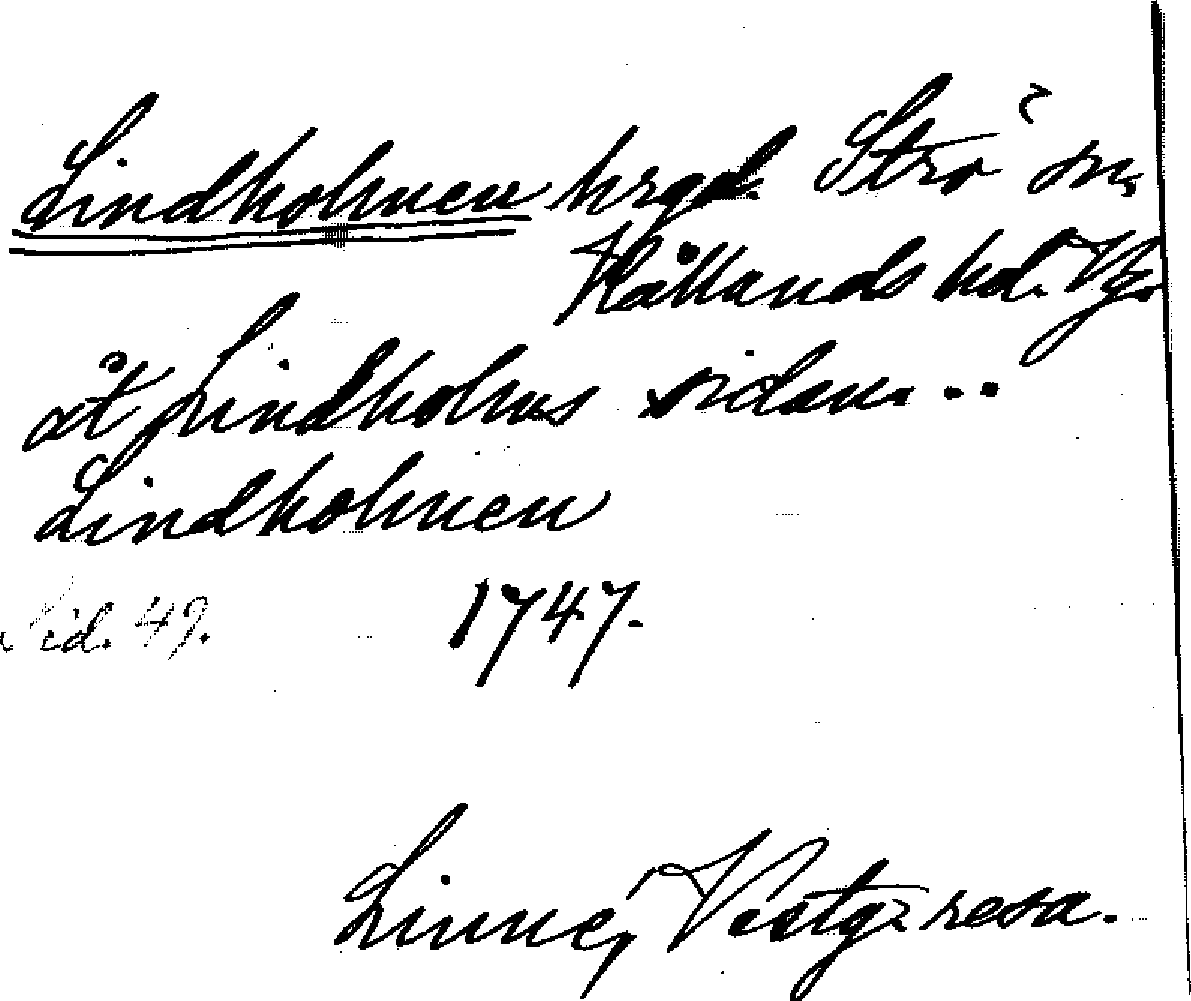 Lindholmen hrgd. Strö sn,
Kållands hd. Vg.
åt Lindholms sidan...
Lindholmen
Sid. 49. 1747.
Linné, Vestg. resa.